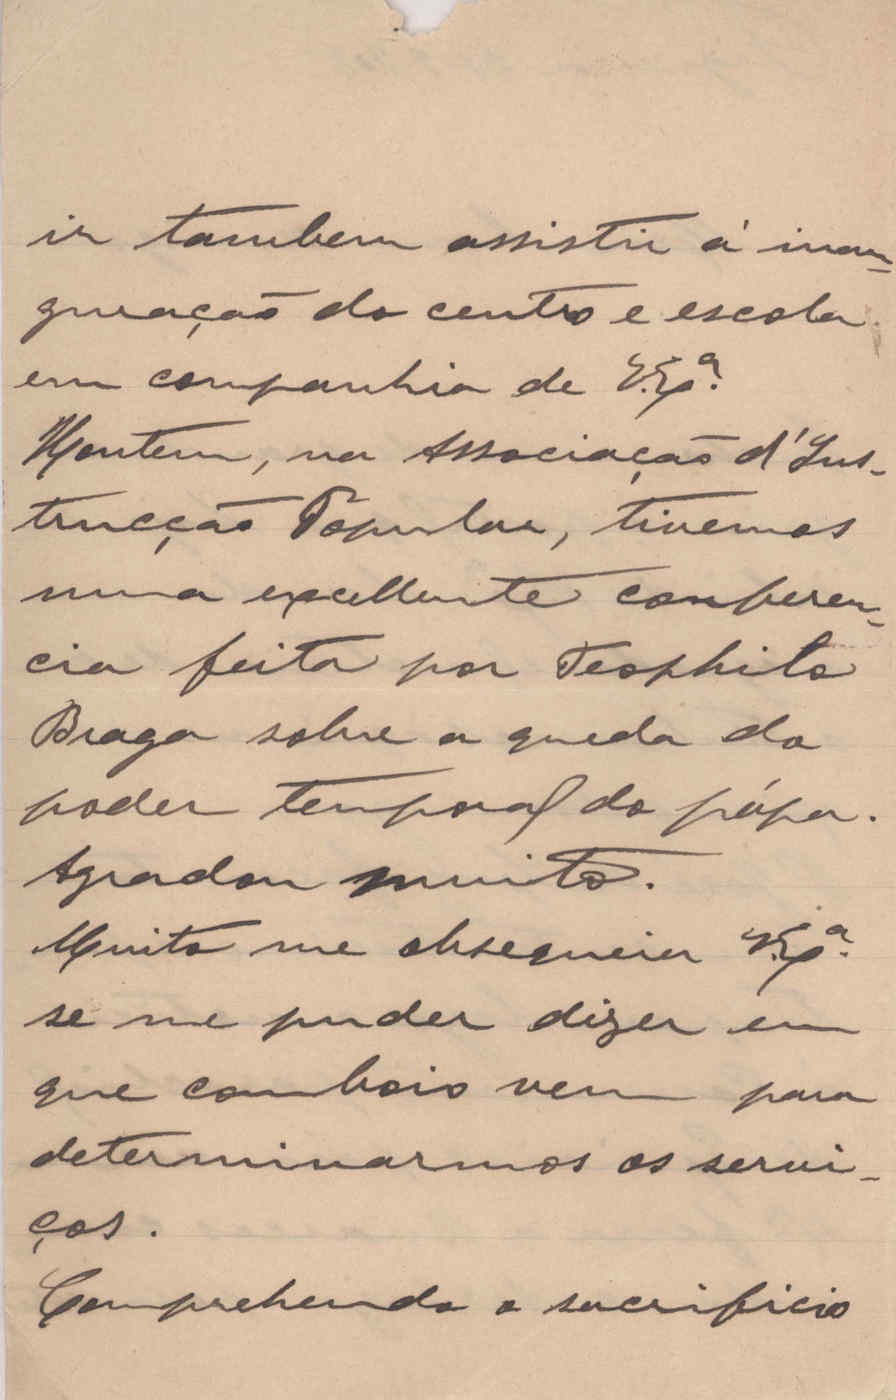 ir tambem assistir á inau-
guração do centro e escola
em companhia de V. Exª.
Hontem, na Associação d'Ins-
trucção Popular, tivemos
uma excellente conferen-
cia feita por Teophilo
Braga sobre a queda do
poder temporal do pápa.
Agradou muito.
Muito me obsequeia V. Exª.
se me puder dizer em
que comboio vem para
determinarmos os servi-
ços.
Comprehendo o sacrificio